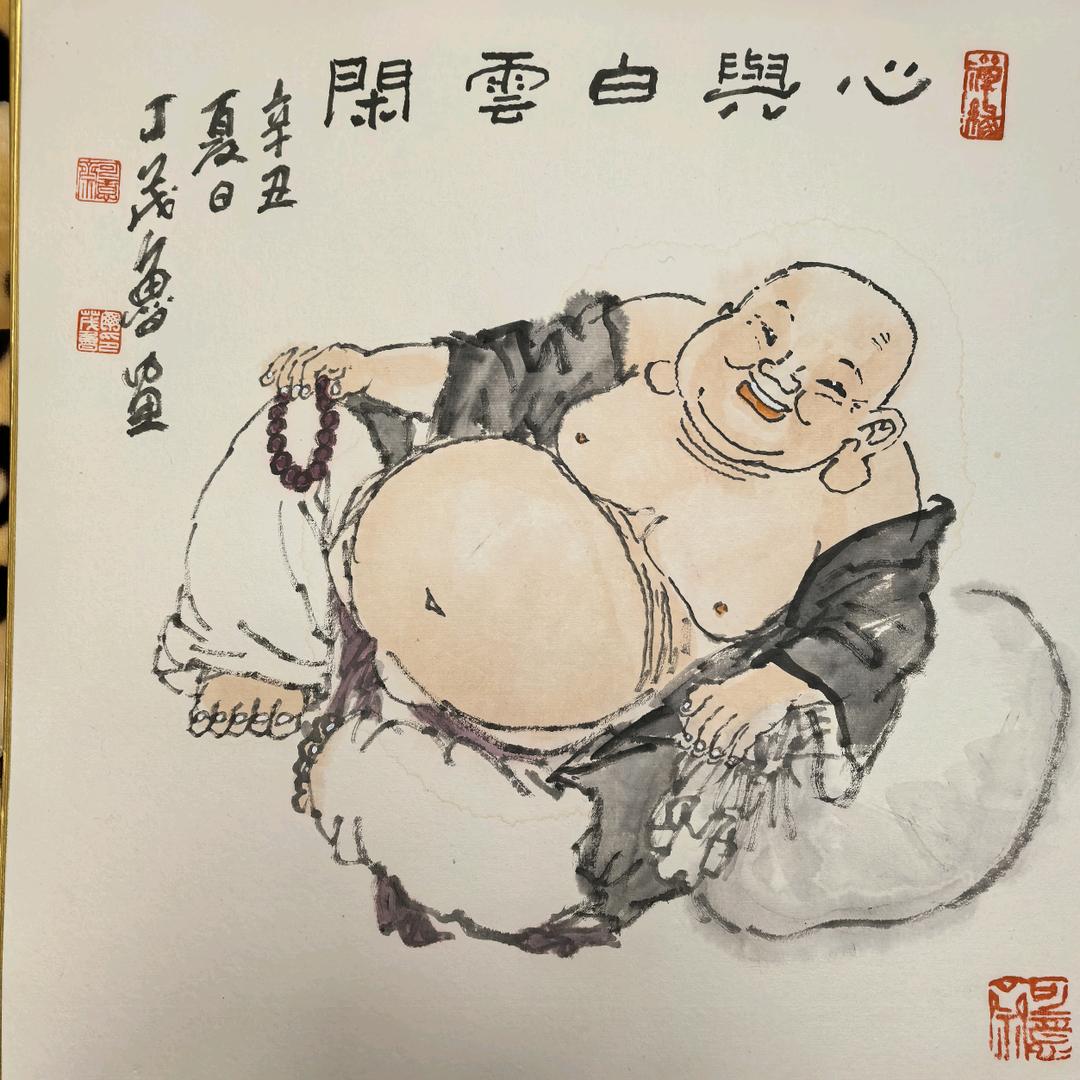 禪緣
心與白雲閑
辛丑
夏日
丁茂魯畫